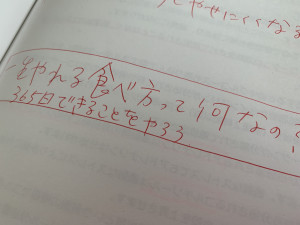 やせにくくなる
やれる食べ方って何なの
365日できることをやろう